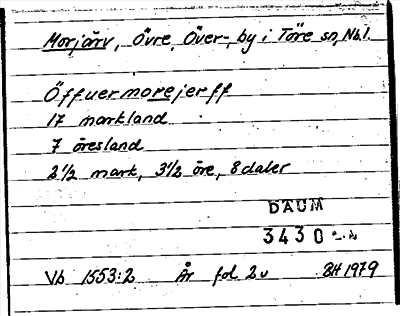 Morjärv, Övre, Över-, by i Töre sn, Nb.l.
Öffuermorejerff
17 markland
7 öresland
2 1/2 mark, 3 1/2 öre, 8 daler
DAUM
3430
Vb 1553:2 År fol. 2v BH 1979